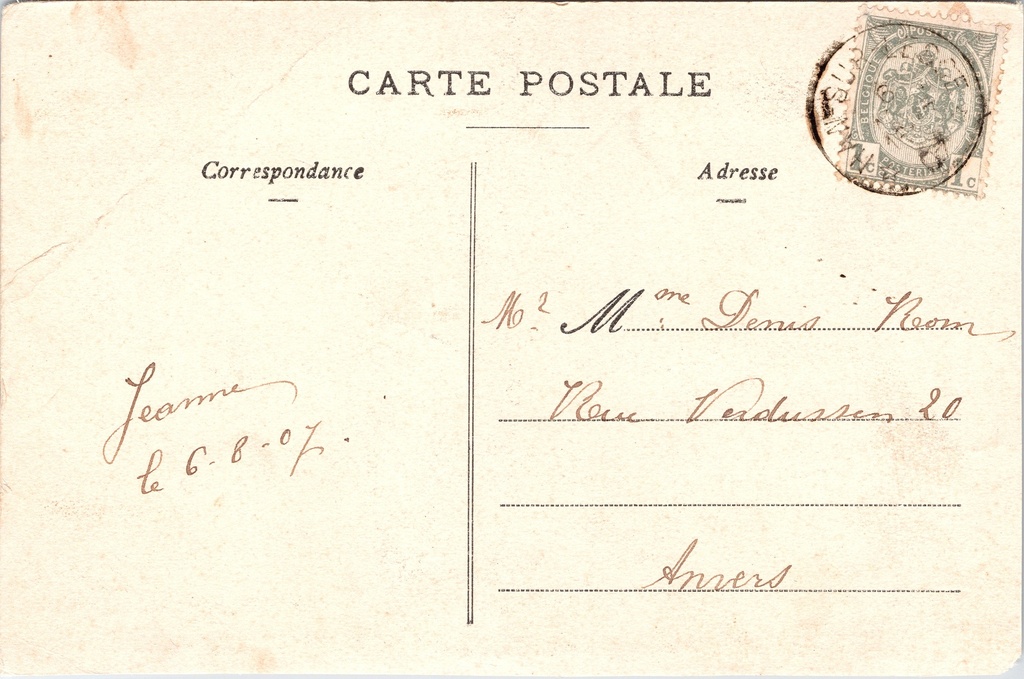 CARTE POSTALE
Correspondance
Adresse
POSTES
BELGIQUE
1c 1c
Mr Mme Denis Rom
Rue Verdussen 20
Anvers
Jeanne
le 6-8-07.